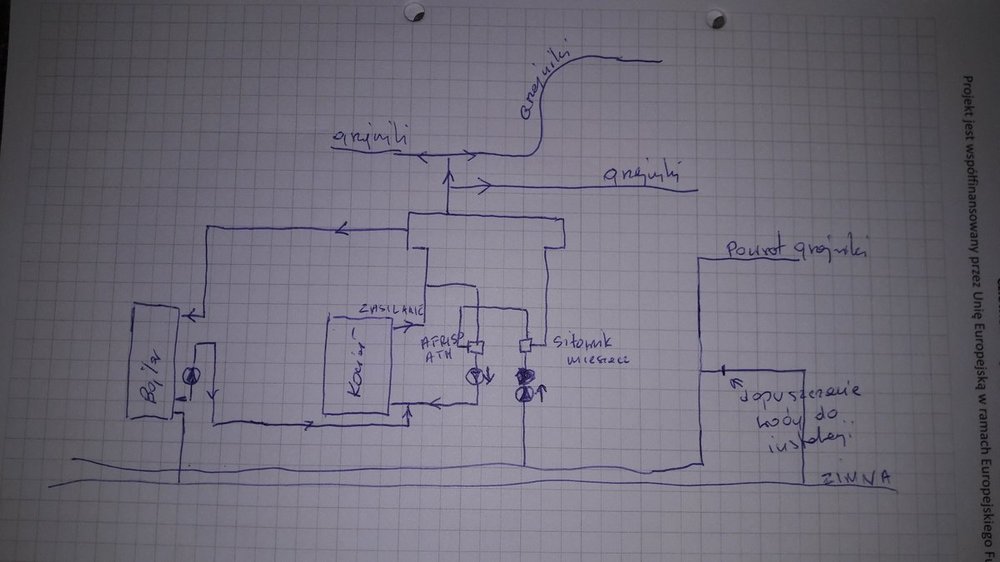 grzejniki
grzejniki
grzejniki
Powrót grzejniki
ZASILANIE
AFRISO
ATH
Siłownik
mieszacz
Bojler
Kocioł
dopuszczenie
wody do
instalacji
ZIMNA
Projekt jest współfinansowany przez Unię Europejską w ramach Europejskiego Fu